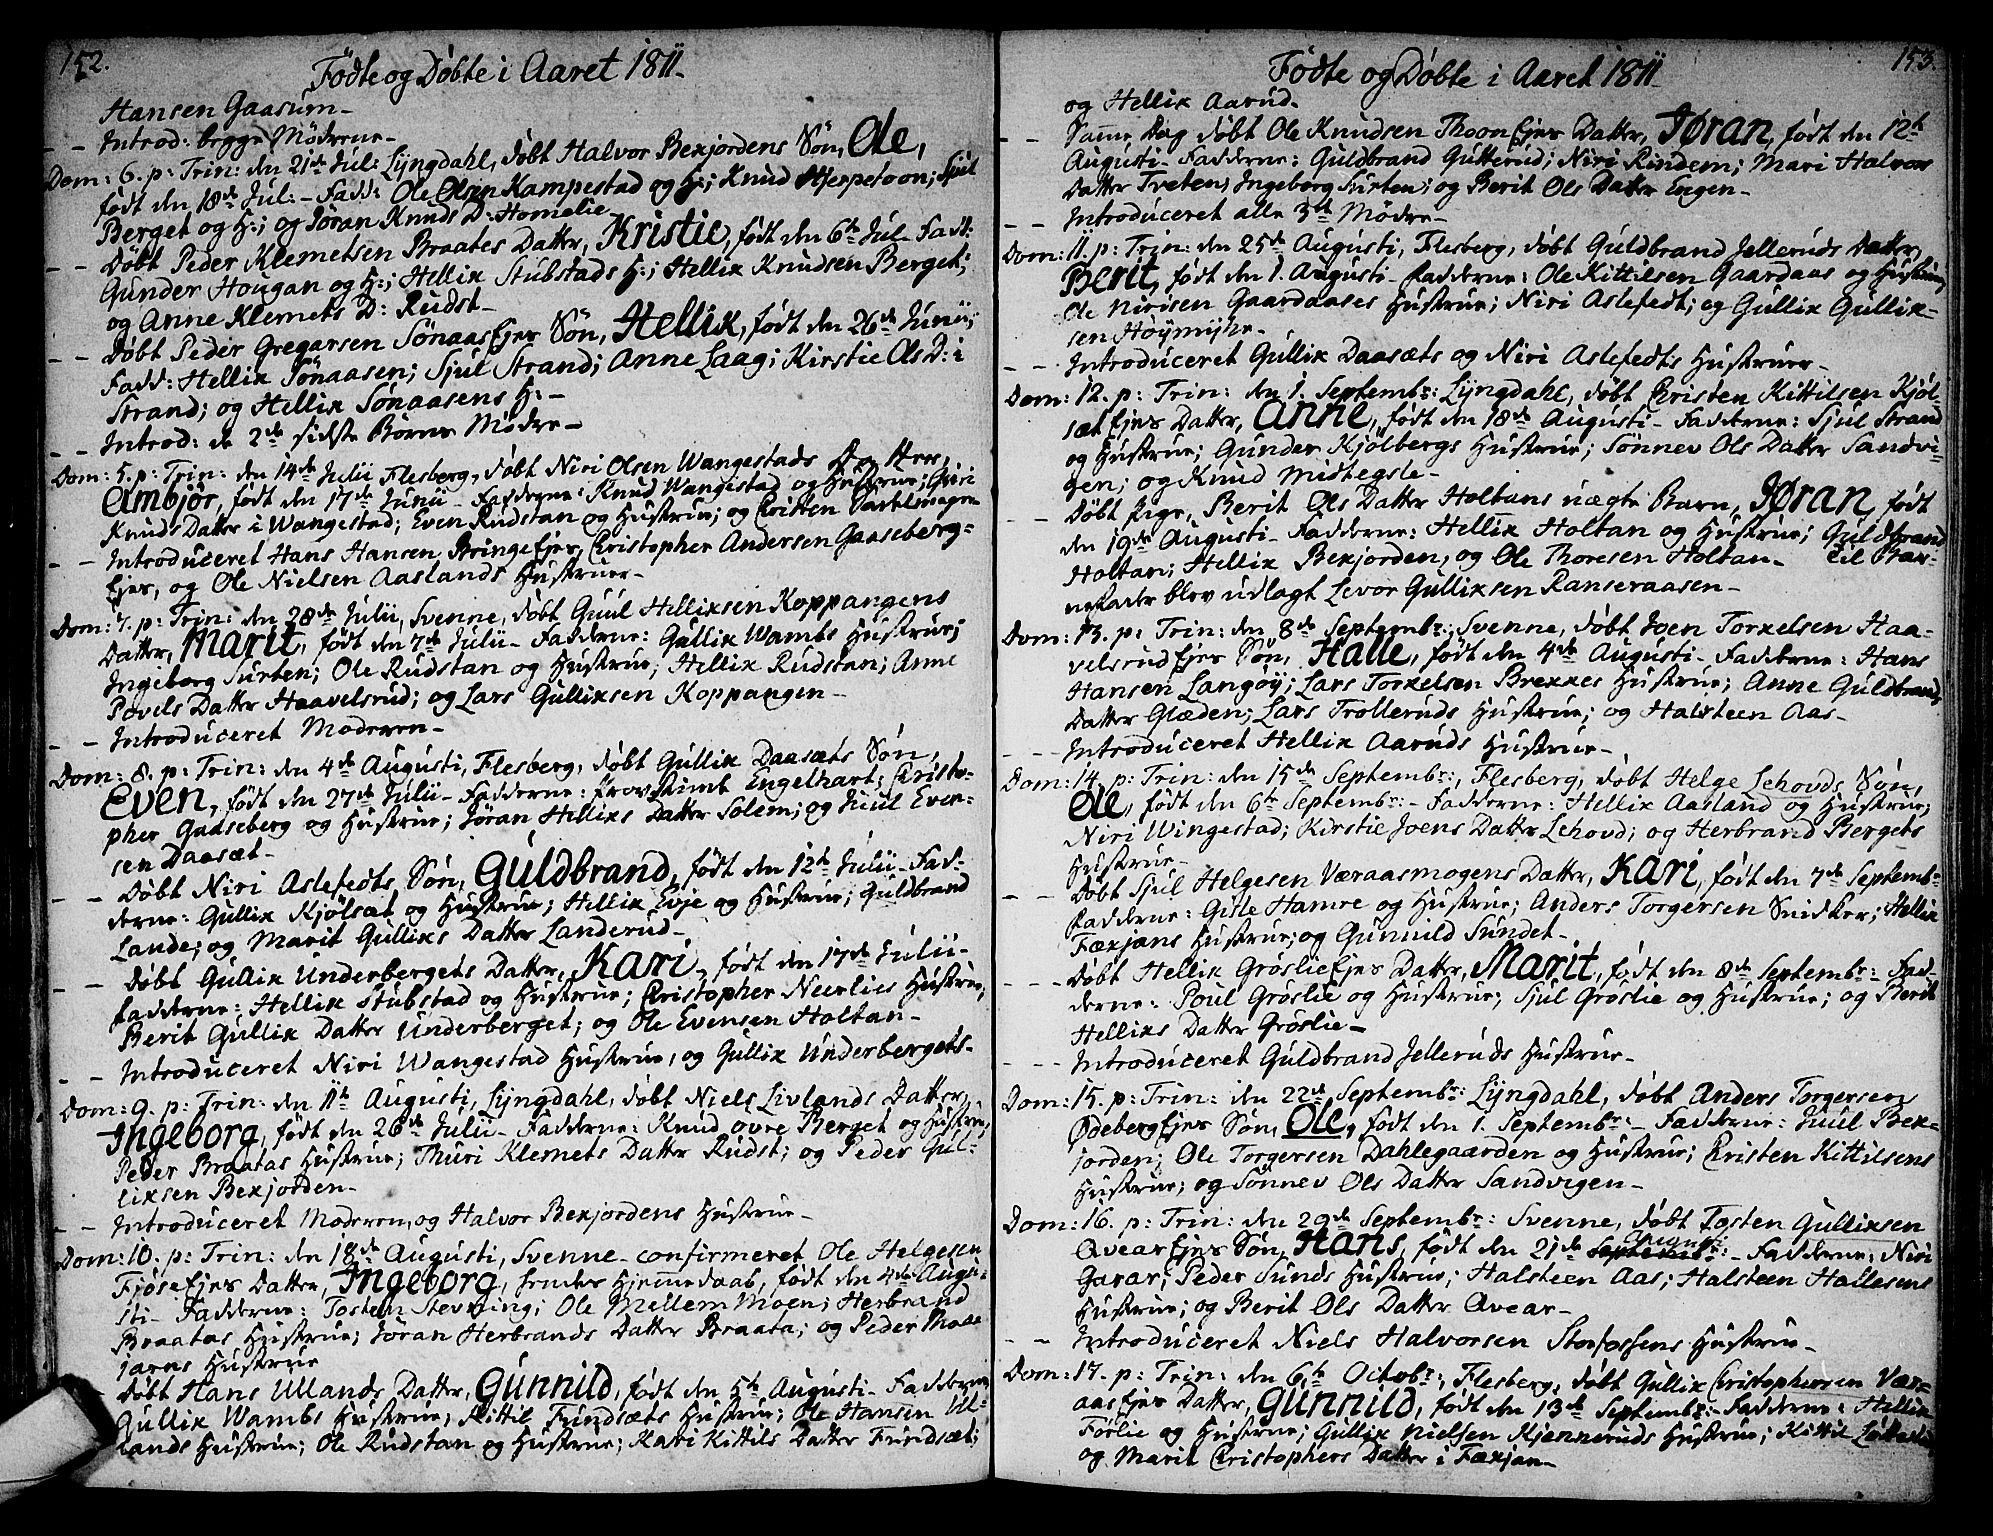 152.
Födte og Döbte i Aaret 1811.
Hansen Gaasum.
- - Introd: begge Mödrene.
Dom: 6. p: Trin: den 21de Jul: Lyngdahl, döbt Halvor Bexjordens Sön, Ole,
födt den 18de Jul: - Fadd: Ole Olsen Kampestad og H:; Knud Hierpetoon; Sjul
Berget og H:; og Jöran Knuds D: Homelie
- - Döbt Peder Klemetsen Braates Datter, Kristie, födt den 6te Jul. Fadd:
Gunder Hougan og H:; Hellik Stubstads H:; Hellik Knudsen Berget;
og Anne Klemets D: Rudst.
- - Döbt Peder Gregarsen Sönaas Ejes Sön, Hellik, födt den 26de Junii;
Fadd: Hellik Sönaasen; Sjul Strand; Anne Laag; Kirstie Ols D: i
Strand; og Hellik Sönaasens H: -
- - Introd: de 2de sidste Börns Mödre -
Dom: 5. p: Trin: den 14de Julii Flesberg, döbt Niri Olsen Wangestads Datter,
Ambjör, födt den 17de Junii - Fadderne: Knud Wangestad og Hustrue; Guri
Knuds Datter i Wangestad; Even Rudstan og Hustrue; og Cristen
- - Introduceret Hans Hansen Ejes, Christopher Andersen Gaaseberg-
Ejes, og Ole Nielsen Aaslands Hustruer -
Dom: 7. p: Trin: den 28de Julii, Svenne, döbt Guul Helliksen Koppangens
Datter, Marit, födt den 7de Julii - Fadderne: Gullik Wambs Hustrue;
Ingeborg Surten; Ole Rudstan og Hustrue; Hellik Rudstan; Anne
Povels Datter Haavelsrud; og Lars Gulliksen Koppangen -
- - Introduceret Moderen -
Dom: 8. p: Trin: den 4de Augusti, Flesberg, döbt Gullik Daasæts Sön,
Even, födt den 27de Julii - Fadderne: Engelhart; Christo-
pher Gaaseberg og Hustrue; Jöran Helliks Datter Solem; og Juul Even-
sen Daasæt -
- - Döbt Niri Aslefedts Sön, Guldbrand, födt den 12te Julii - Fad-
derne: Gullik Kjölsæt og Hustrue; Hellik Evje og Hustrue; Guldbrand
Lande; og Marit Gulliks Datter Landerud -
- - Döbt Gullik Underbergets Datter, Kari, födt den 17de Julii -
Fadderne: Hellik Stubstad og Hustrue; Christopher Neerlies Hustrue,
Berit Gullik Datter Underberget; og Ole Evensen Holtan -
- - Introduceret Niri Wangestad Hustrue, og Gullik Underbergets -
Dom: 9. p: Trin: den 11te Augusti, Lyngdahl, döbt Niels Livlands Datter,
Ingeborg, födt den 26de Julii - Fadderne: Knud övre Berget og Hustrue,
Peder Braatas Hustrue; Thuri Klemets Datter Rudst; og Peder Gul-
liksen Bexjorden -
- - Introduceret Moderen, og Halvor Bexjordens Hustrue -
Dom: 10. p: Trin: den 18de Augusti, Svenne - confirmeret Ole Helgesen
Fjöse Ejes Datter, Ingeborg, hendes Hjemmedaab, födt den 4de Augu-
sti - Fadderne: Tosten Stevning; Ole Mellem Moen; Herbrand
Braatas Hustrue; Jöran Herbrands Datter Braata; og Peder Moe
jarns Hustrue
Döbt Hans Ullands Datter, Gunnild, födt den 5te Augusti - Fadderne
Gullik Wambs Hustrue; Kittil Frindsæts Hustrue; Ole Hansen Ul-
lands Hustrue; Ole Rudstan og Hustrue; Kari Kittils Datter Frindsæt;
153.
Födte og Döbte i Aaret 1811.
og Hellik Aarud.
- - Samme Dag döbt Ole Knudsen Thoon Ejes Datter, Jøran, födt den 12te
Augusti - Fadderne: Guldbrand Gutterud; Niri Rindem; Mari Halvors
Datter Tveten; Ingeborg Surten; og Berit Ols Datter Engen -
- - Introduceret alle 3de Mödre -
Dom: 11. p: Trin: den 25de Augusti, Flesberg, döbt Guldbrand Jelleruds Datter,
Berit, födt den 1. Augusti - Fadderne: Ole Kittilsen Gaardaas og Hustrue,
Ole Nirisen Gaardaases Hustrue; Niri Aslefedt; og Gullik Gullik-
sen Höymyhr -
- - Introduceret Gullik Daasæts og Niri Aslefedts Hustruer -
Dom: 12. p: Trin: den 1. Septembr: Lyngdahl, döbt Christen Kittilsen Kjöl-
sæt Ejes Datter, Anne, födt den 18de Augusti - Fadderne: Sjul Strand
og Hustrue; Gunder Kjölbergs Hustrue; Sönnev Ols Datter Sandvi-
gen; og Knud Midtegsle -
- Döbt Pige, Berit Ols Datter Holtans uægte Barn, Jøran, födt
den 19de Augusti - Fadderne: Hellik Holtan og Hustrue; Guldbrand
Holtan; Hellik Bexjorden, og Ole Thoresen Holtan - til Bar-
nefader blev udlagt Levor Gulliksen Ranseraasen -
Dom: 13. p: Trin: den 8de Septembr: Svenne, döbt Joen Torkelsen Haa-
velsrud Ejes Sön, Halle, födt den 4de Augusti - Fadderne: Hans
Hansen Langöy; Lars Torkelsen Brekkes Hustrue; Anne Guldbrands
Datter Glæden; Lars Trolleruds Hustrue; og Halsteen Aas -
- - Introduceret Hellik Aaruds Hustrue -
Dom: 14. p: Trin: den 15de Septembr:, Flesberg, döbt Helge Lehovds Sön,
Ole, födt den 6te Septembr: - Fadderne: Hellik Aasland og Hustrue;
Niri Wingestad; Kirstie Joens Datter Lehovd; og Herbrand Bergets
Hustrue -
- - Döbt Sjul Helgesen Væraasmogens Datter, Kari, födt den 7de Septembr:
Fadderne: Gisle Hamre og Hustrue; Anders Torgersen Snidker; Hellik
Fæxjans Hustrue; og Gunnild Sundet -
- - - Döbt Hellik Gröslie Ejes Datter, Marit, födt den 8de Septembr: Fad-
derne: Poul Gröslie og Hustrue; Sjul Gröslie og Hustrue; og Berit
Helliks Datter Gröslie -
- - - Introduceret Guldbrand Jelleruds Hustrue -
Dom: 15. p: Trin: den 22de Septembr: Lyngdahl, döbt Anders Torgersen
Ødeberg Ejes Sön, Ole, födt den 1. Septembr: - Fadderne: Juul Bex-
jorden; Ole Torgersen Dahlegaarden og Hustrue; Cristen Kittilsens
Hustrue; og Sönnev Ols Datter Sandvigen -
Dom: 16. p: Trin: den 29de Septembr: Svenne, döbt Tosten Gulliksen
Qvear Ejes Sön, Hans, födt den 21de Septembr: Augusti - Fadderne: Niri
Gavar; Peder Sunds Hustrue; Halsteen Aas; Halsteen Hallesens
Hustrue; og Berit Ols Datter Qvear -
- - Introduceret Niels Halvorsen Storfossens Hustrue -
Dom: 17. p: Trin: den 6te Octobr:, Flesberg, döbt Gullik Christophersen Vær-
aas Ejes Datter, Gunnild, födt den 13de Septembr: - Fadderne: Hellik
Förlie og Hustrue; Gullik Nielsen Kjenneruds Hustrue; Kittil
og Marit Christophers Datter i Fæxjan -